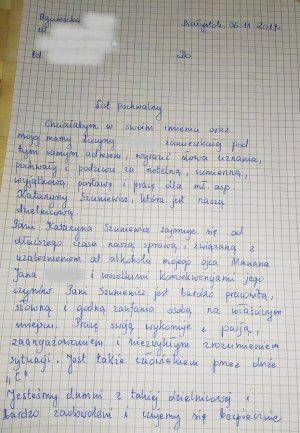 Agnieszka
ul.
tel.
Białystok, 06.11.2019r.
Do
List pochwalny
Chciałabym w swoim imieniu oraz
mojej mamy Lucyny zamieszkałej pod
tym samym adresem, wyrazić słowa uznania,
pochwały i podziwu za rzetelną, sumienną,
wyjątkową postawę i pracę dla mł. asp.
Katarzyny Szuniewicz, która jest naszą
dzielnicową.
Pani Katarzyna Szuniewicz zajmuje się od
dłuższego czasu naszą sprawą, związaną z
uzależnieniem od alkoholu mojego ojca Mariana
Jana i wszelkimi konsekwencjami jego
czynów. Pani Szuniewicz jest bardzo pracowitą,
słowną i godną zaufania osobą na właściwym
miejscu. Pracę swoją wykonuje z pasją,
zaangażowaniem i niezwykłym zrozumieniem
sytuacji. Jest także człowiekiem przez duże
"C".
Jesteśmy dumni z takiej dzielnicowej i
bardzo zadowoleni i czujemy się bezpiecznie